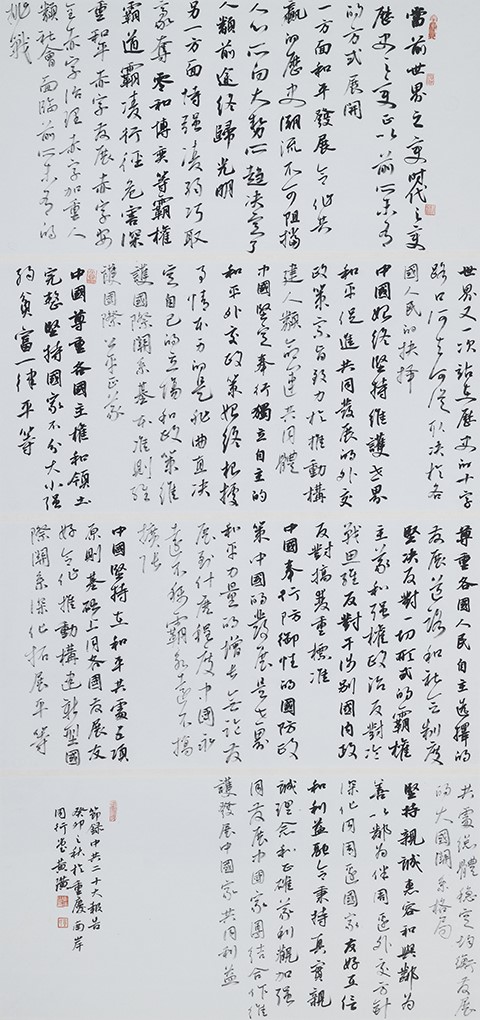 當前世界之變時代之變
歷史之變正以前所未有
的方式展開
一方面和平發展合作共
贏的歷史潮流不可阻擋
人心所向大勢所趨決定了
人類前途終歸光明
另一方面恃強凌弱巧取
豪奪零和博弈等霸權
霸道霸凌行徑危害深
重和平赤字發展赤字安
全赤字治理赤字加重人
類社會面臨前所未有的
挑戰
世界又一次站在歷史的十字
路口何去何從取決於各
國人民的抉擇
中國始終堅持維護世界
和平促進共同發展的外交
政策宗旨致力於推動構
建人類命運共同體
中國堅定奉行獨立自主的
和平外交政策始終根據
事情本身的是非曲直決
定自己的立場和政策維
護國際關系基本准則維
護國際公平正義
中國尊重各國主權和領土
完整堅持國家不分大小強
弱貧富一律平等
尊重各國人民自主選擇的
發展道路和社會制度
堅決反對一切形式的霸權
主義和強權政治反對冷
戰思維反對干涉別國內政
反對搞雙重標准
中國奉行防御性的國防政
策中國的發展是世界
和平力量的增長無論發
展到什麼程度中國永
遠不稱霸永遠不搞
擴張
中國堅持在和平共處五項
原則基礎上同各國發展友
好合作推動構建新型國
際關系深化拓展平等
共處總體穩定均衡發展
的大國關系格局
堅持親誠惠容和與鄰為
善以鄰為伴周邊外交方針
深化同周邊國家友好互信
和利益融合秉持真實親
誠理念和正確義利觀加強
同發展中國家團結合作維
護發展中國家共同利益
節錄中共二十大報告
癸卯之秋於重慶南岸
黃潢